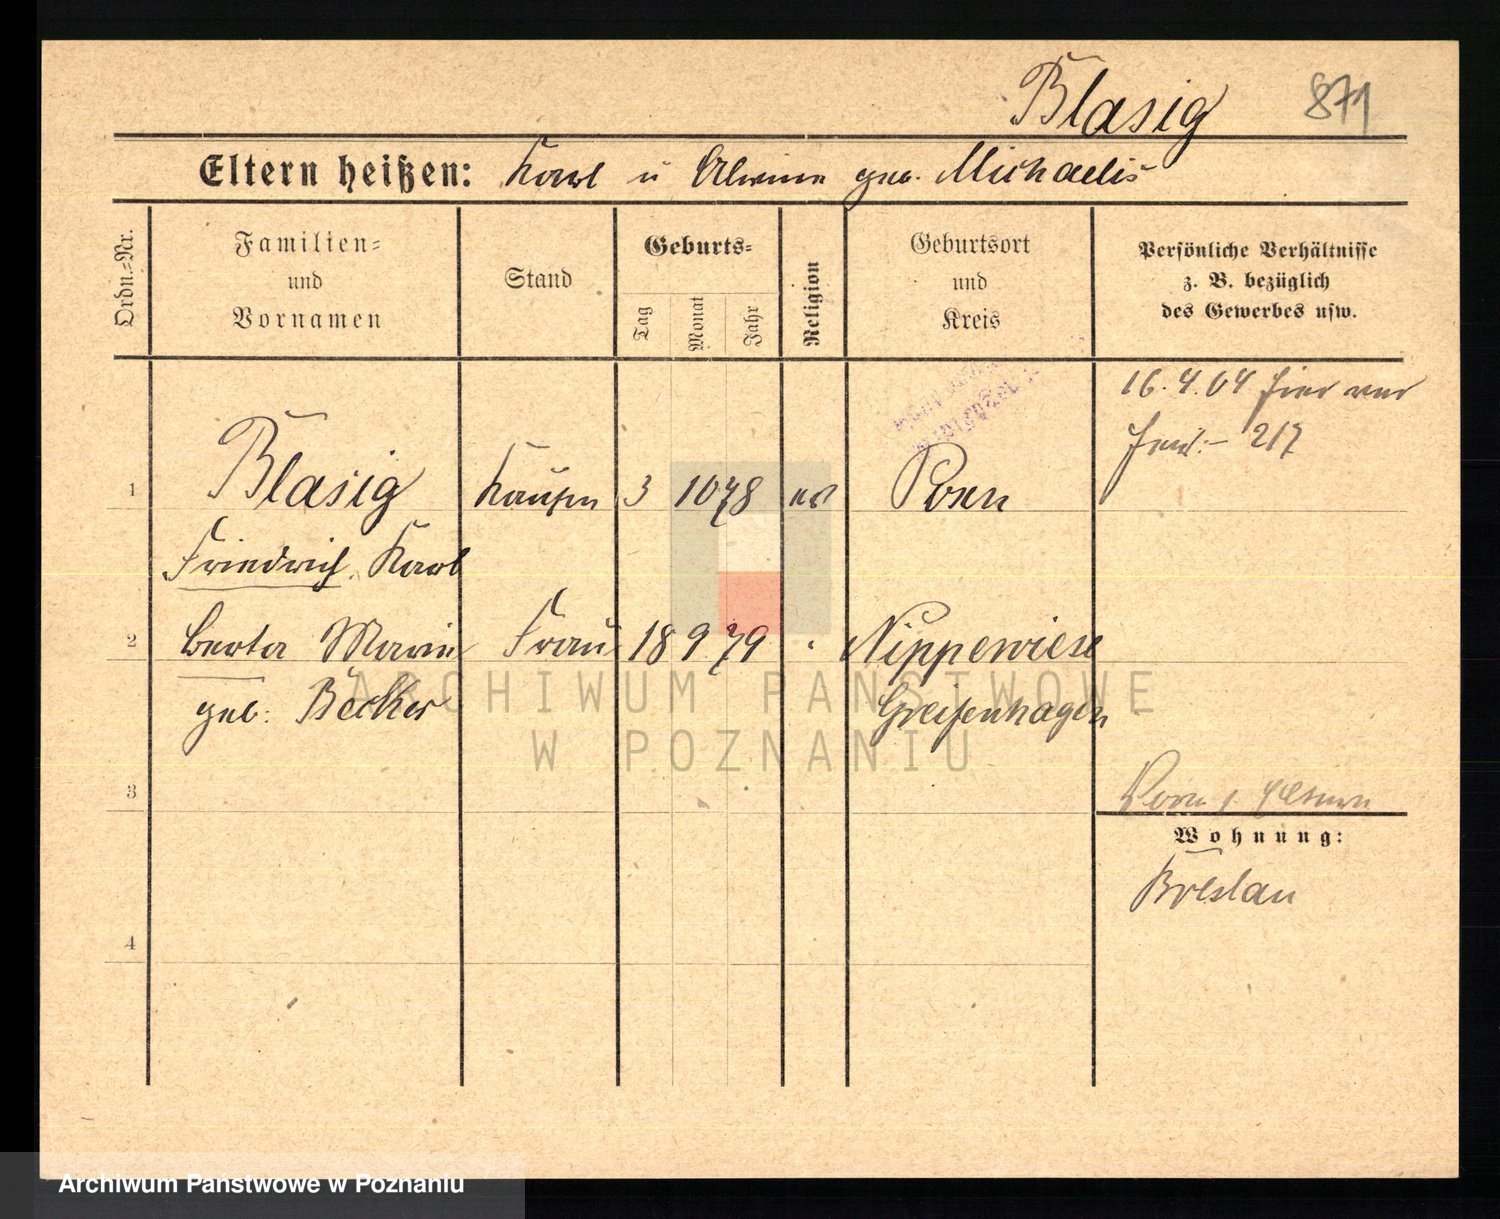 Blasig 871
Eltern heißen: Karl u Alwine geb. Michaelis
Ordn.-Nr.
Familien-
und
Vornamen
Stand
Geburts-
Tag
Monat
Jahr
Religion
Geburtsort
und
Kreis
Persönliche Verhältnisse
z. B. bezüglich
des Gewerbes usw.
16.4.04 hier
217
1 Blasig Kaufm 3 10 78 ev Posen
Friedrich Karl
2 Berta Marie Frau 18 9. 79 " Nippewiese
geb: Becker Greifenhagen
ARCHIWUM PAŃSTWOWE
W POZNANIU
3
Wohnung:
Breslau
4
Archiwum Państwowe w Poznaniu